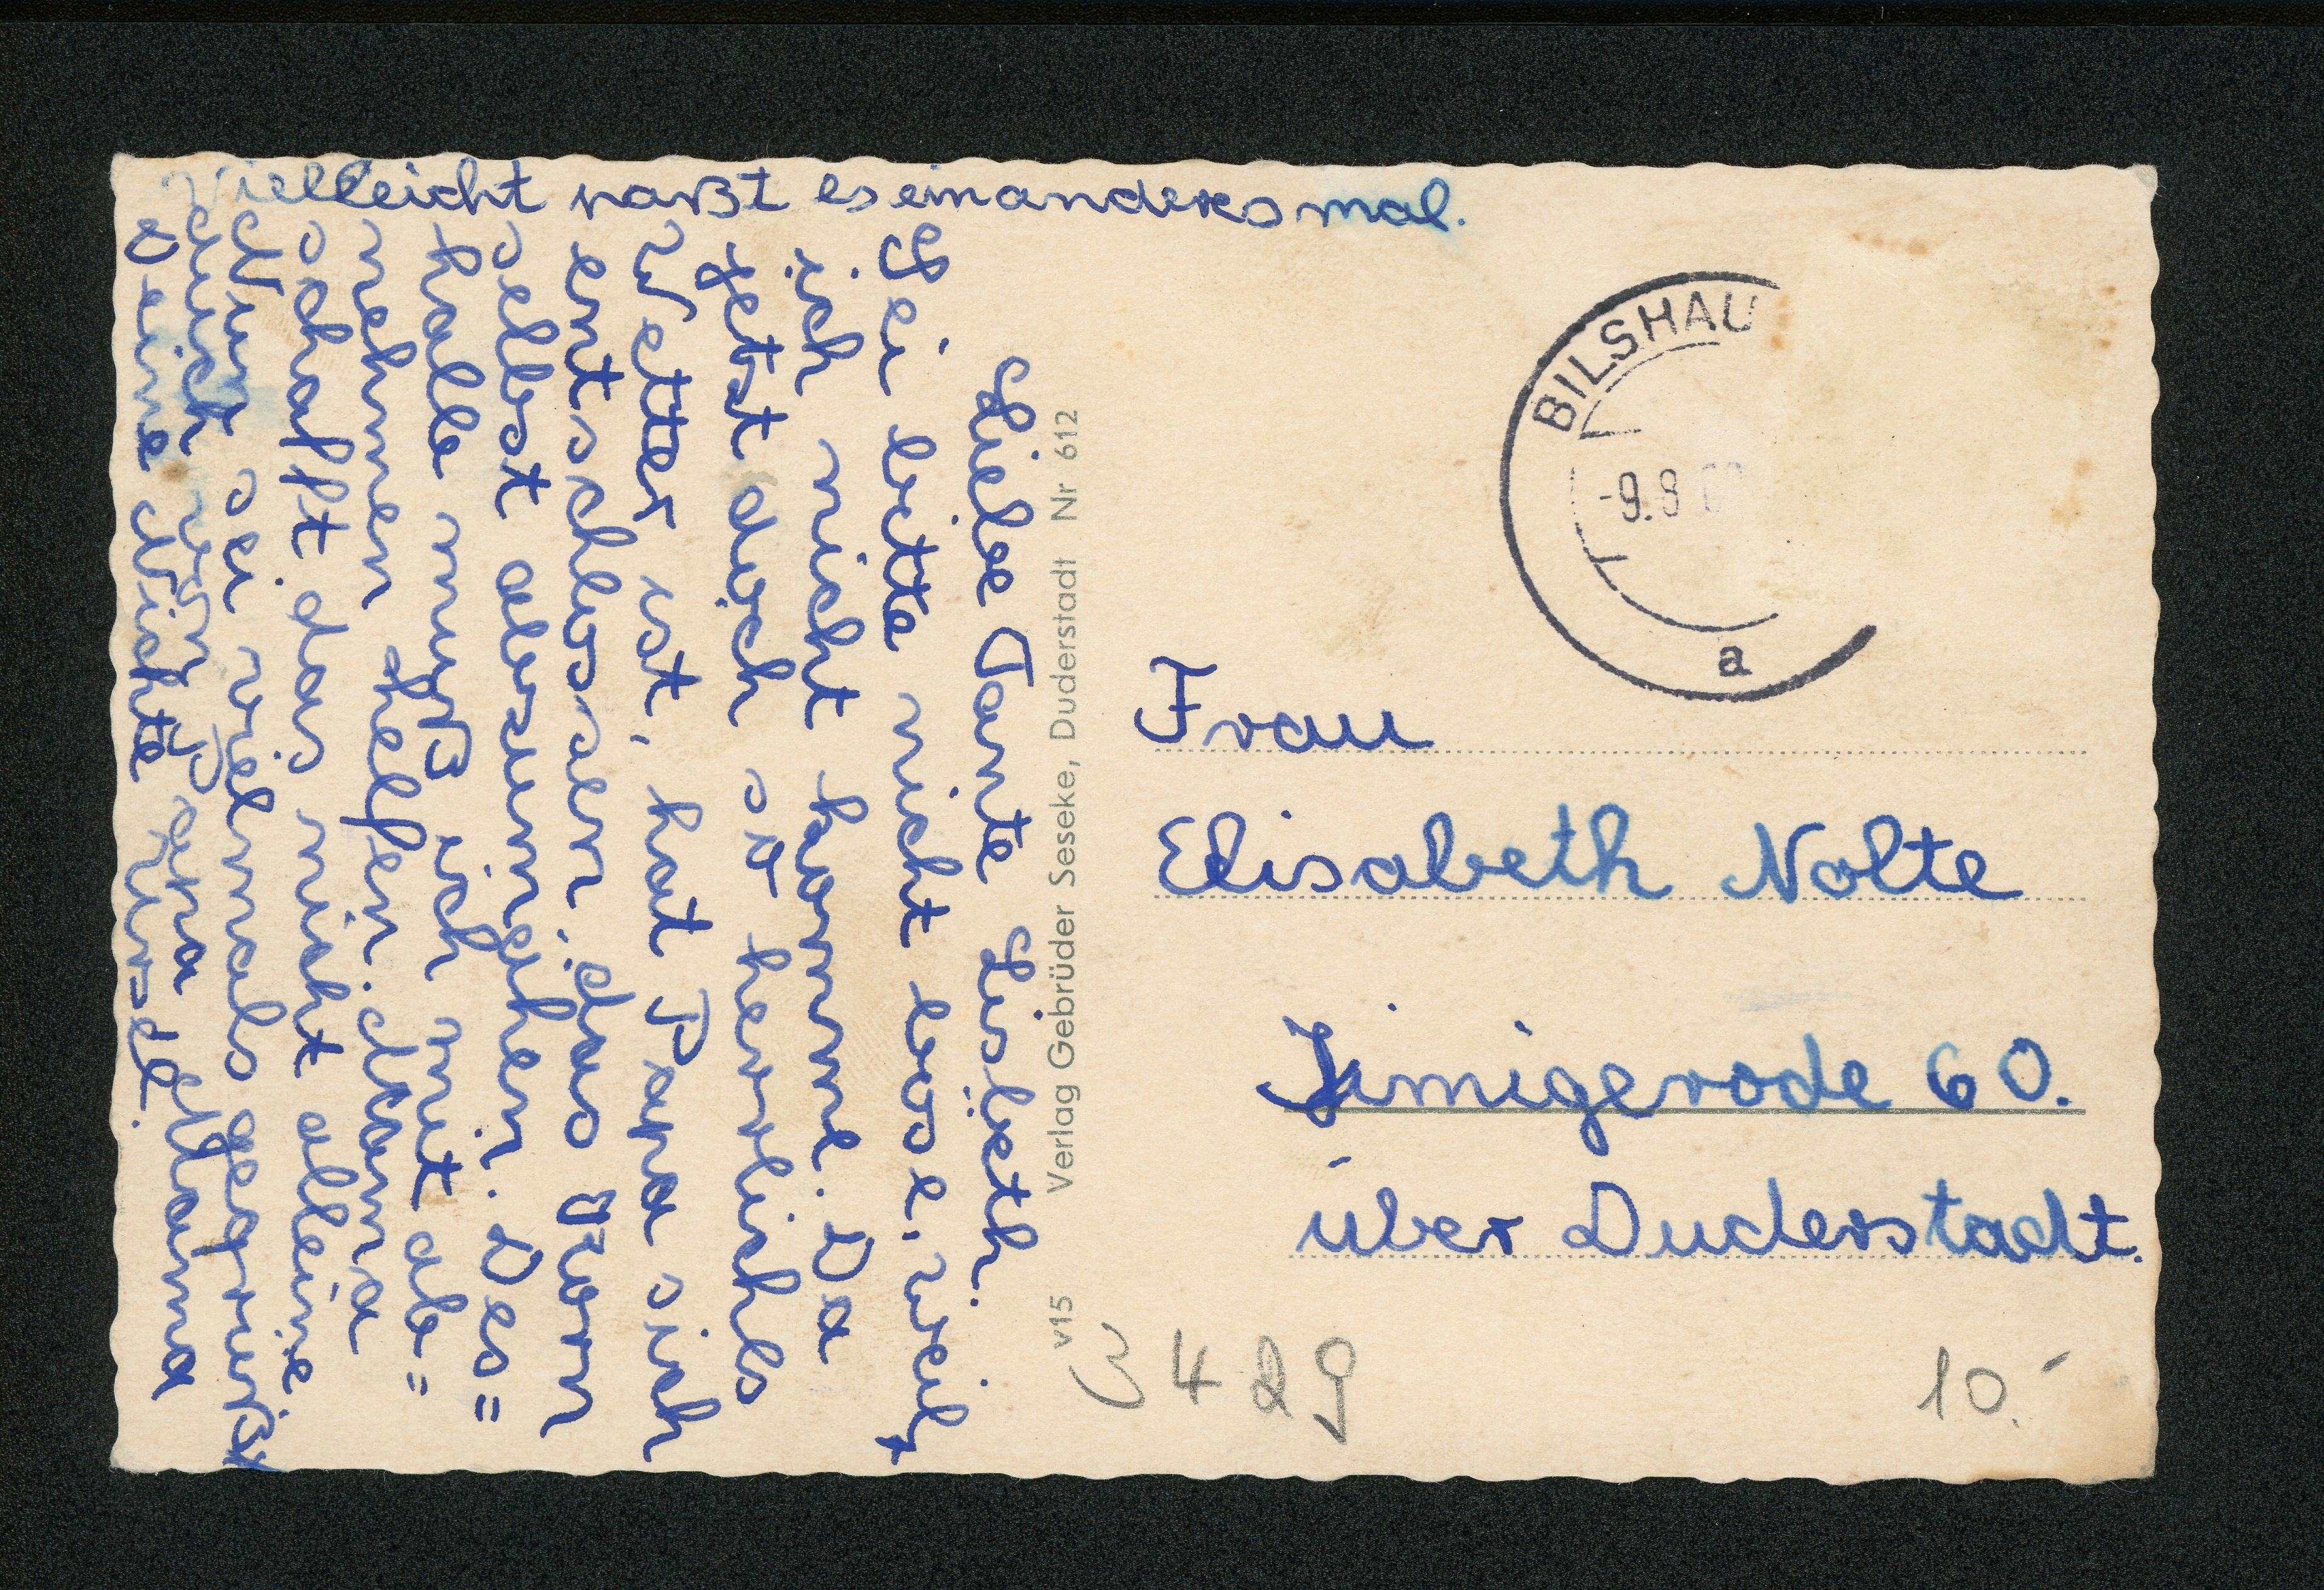 Liebe Tante Lisbeth.
Sei bitte nicht böse, weil
ich nicht komme. Da
jetzt auch so herrlichs
Wetter ist, hat Papa sich
entschlossen, das Korn
selbst abzumähen. Des=
halb muß ich mit ab=
nehmen helfen. Mama
schafft das nicht alleine
Nun sei vielmals gegrüßt
auch von Papa Mama
Deine Nichte
vielleicht paßt es einanderes mal.
BILSHAU
-9.9
a
Frau
Elisabeth Nolte
Jimigerode 60.
über Duderstadt.
v15 Verlag Gebrüder Seseke, Duderstadt Nr 612
3429
10.-